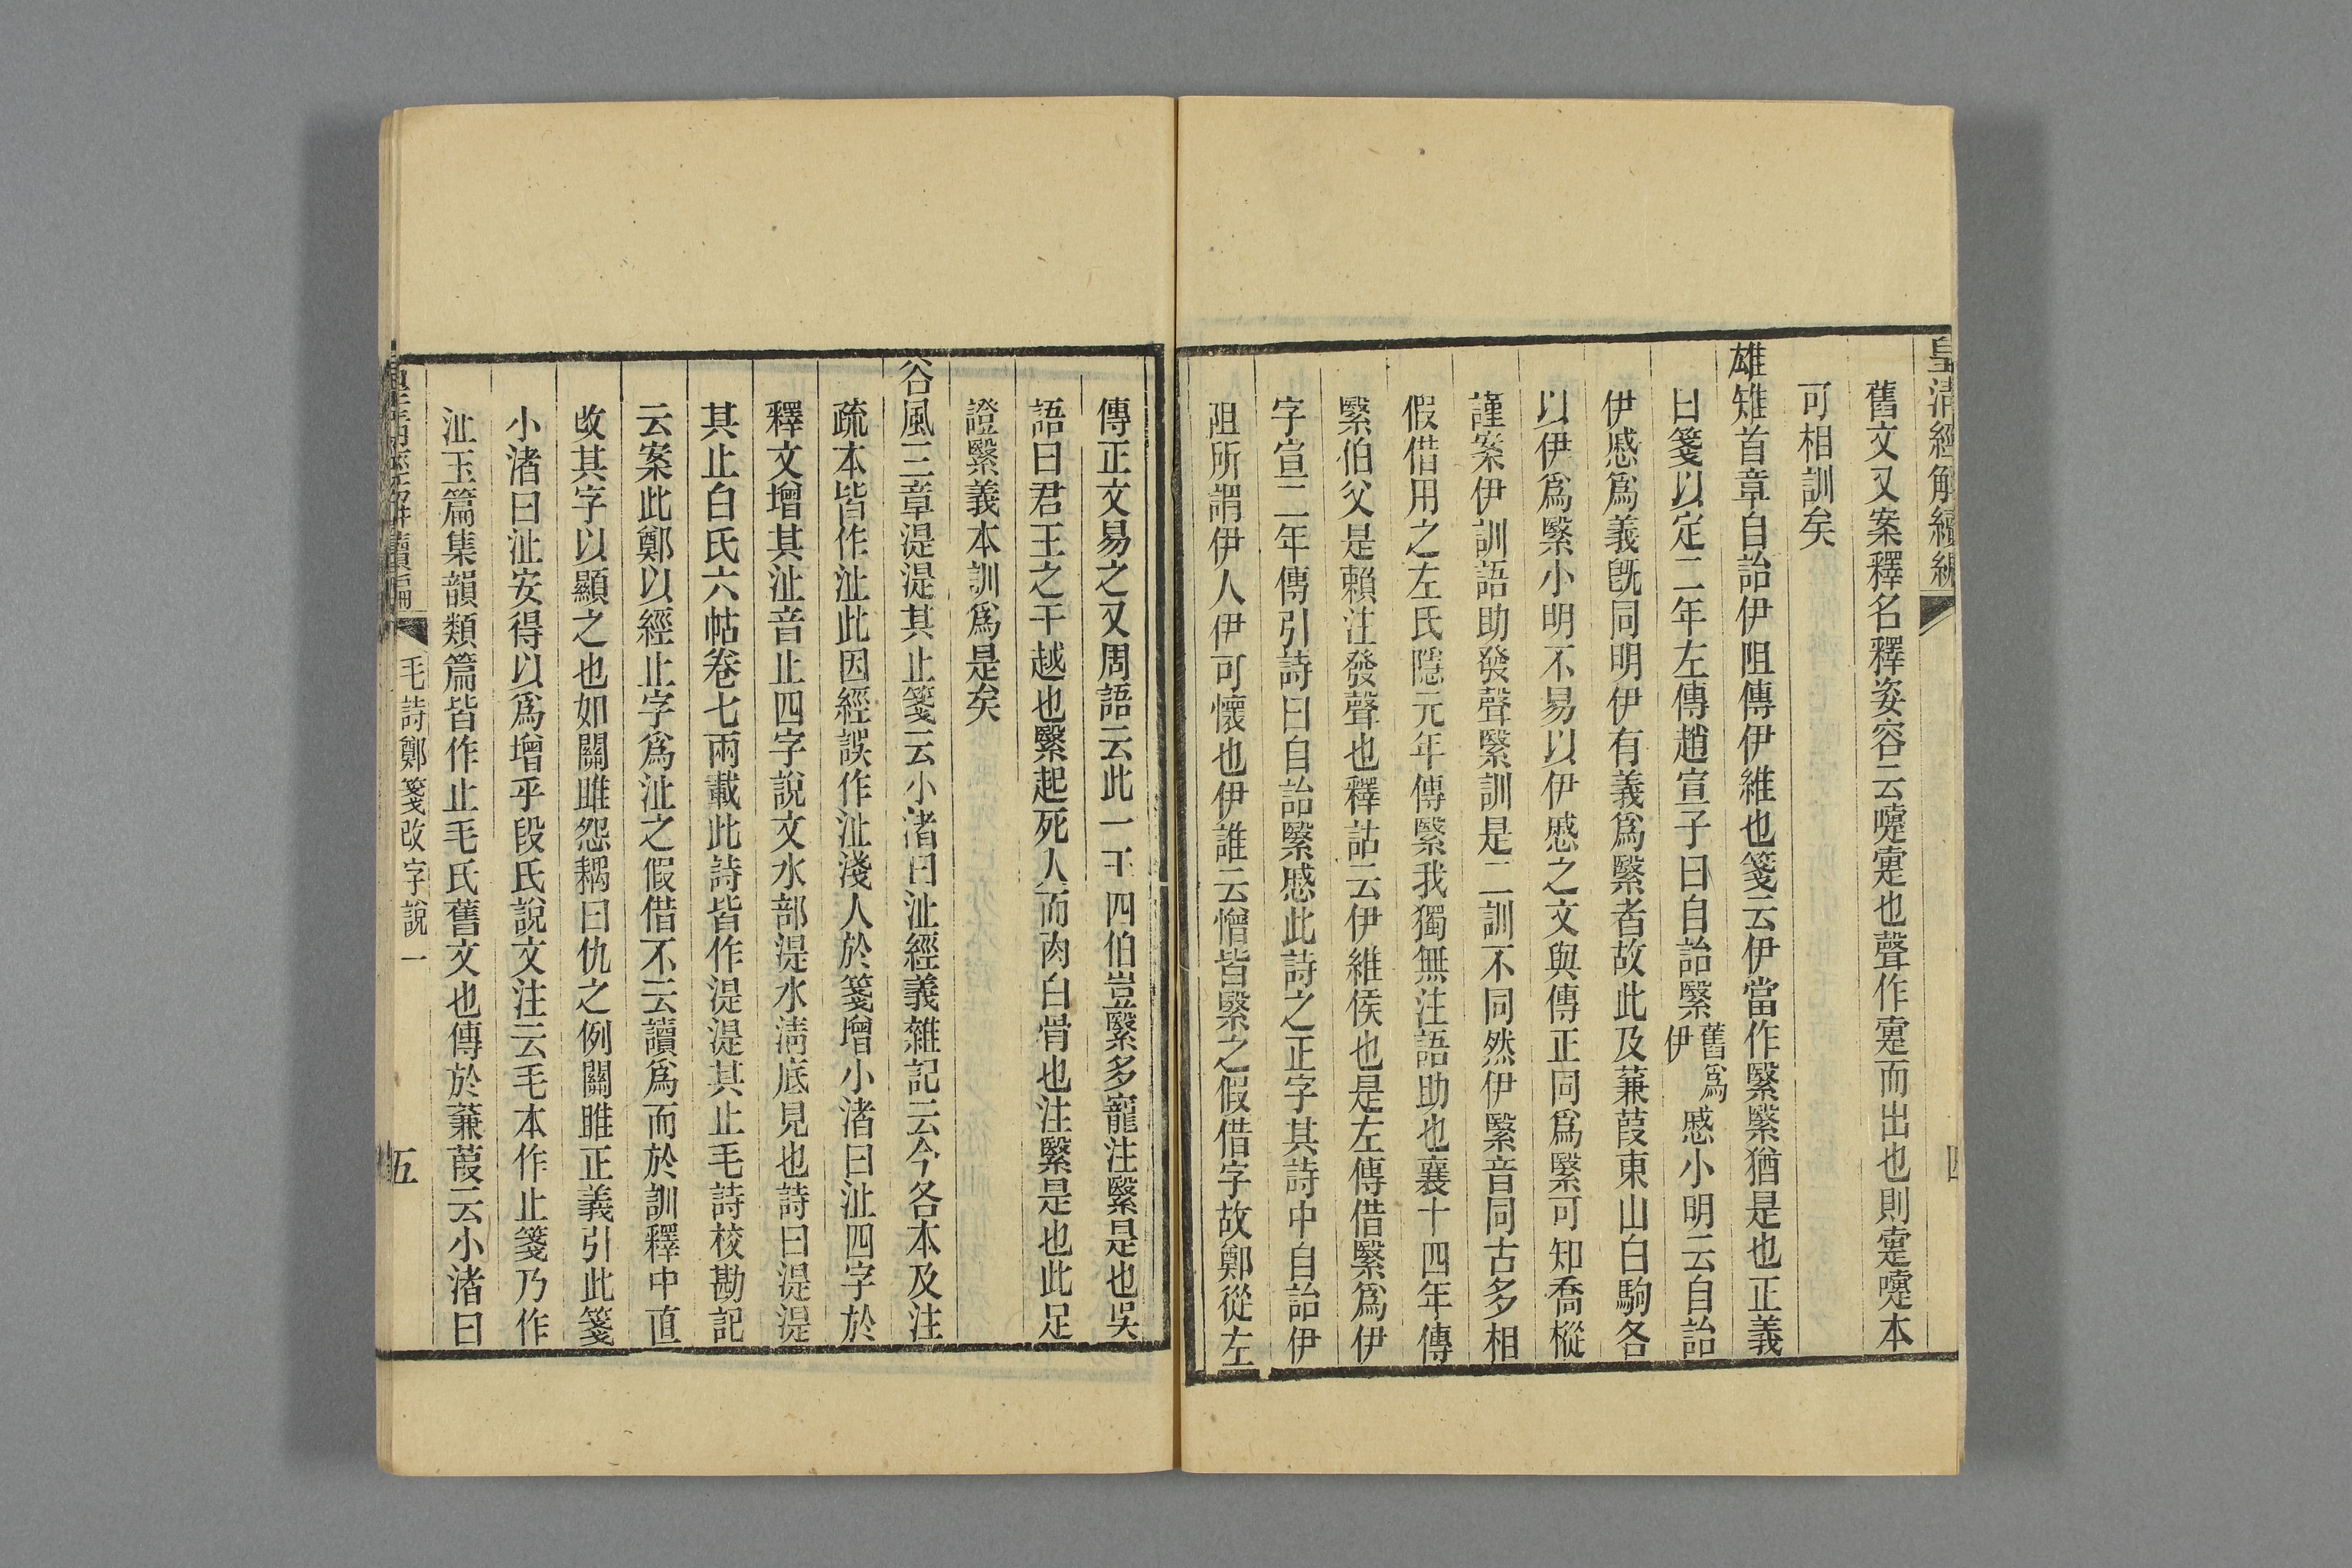 皇清經解續編
四
舊文又案釋名釋姿容云嚏疐也聲作疐而出也則疐嚏本
可相訓矣
雄雉首章自詒伊阻傳伊維也箋云伊當作繄繄猶是也正義
曰箋以定二年左傳趙宣子曰自詒繄舊爲伊慼小明云自詒
伊慼爲義旣同明伊有義爲繄者故此及蒹葭東山白駒各
以伊爲繄小明不易以伊慼之文與傳正同爲繄可知喬樅
謹案伊訓語助發聲繄訓是二訓不同然伊繄音同古多相
假借用之左氏隱元年傳繄我獨無注語助也襄十四年傳
繄伯父是賴注發聲也釋詁云伊維侯也是左傳借繄爲伊
字宣二年傳引詩曰自詒繄慼此詩之正字其詩中自詒伊
阻所謂伊人伊可懷也伊誰云憎皆繄之假借字故鄭從左
傳正文易之又周語云此一王四伯豈繄多寵注繄是也吳
語曰君王之于越也繄起死人而肉白骨也注繄是也此足
證繄義本訓爲是矣
谷風三章湜湜其止箋云小渚曰沚經義雜記云今各本及注
疏本皆作沚此因經誤作沚淺人於箋增小渚曰沚四字於
釋文增其沚音止四字說文水部湜水淸底見也詩曰湜湜
其止白氏六帖卷七兩載此詩皆作湜湜其止毛詩校勘記
云案此鄭以經止字爲沚之假借不云讀爲而於訓釋中直
改其字以顯之也如關雎怨耦曰仇之例關雎正義引此箋
小渚曰沚安得以爲增乎段氏說文注云毛本作止箋乃作
沚玉篇集韻類篇皆作止毛氏舊文也傳於蒹葭云小渚曰
皇清經解續編
毛詩鄭箋改字說一
五